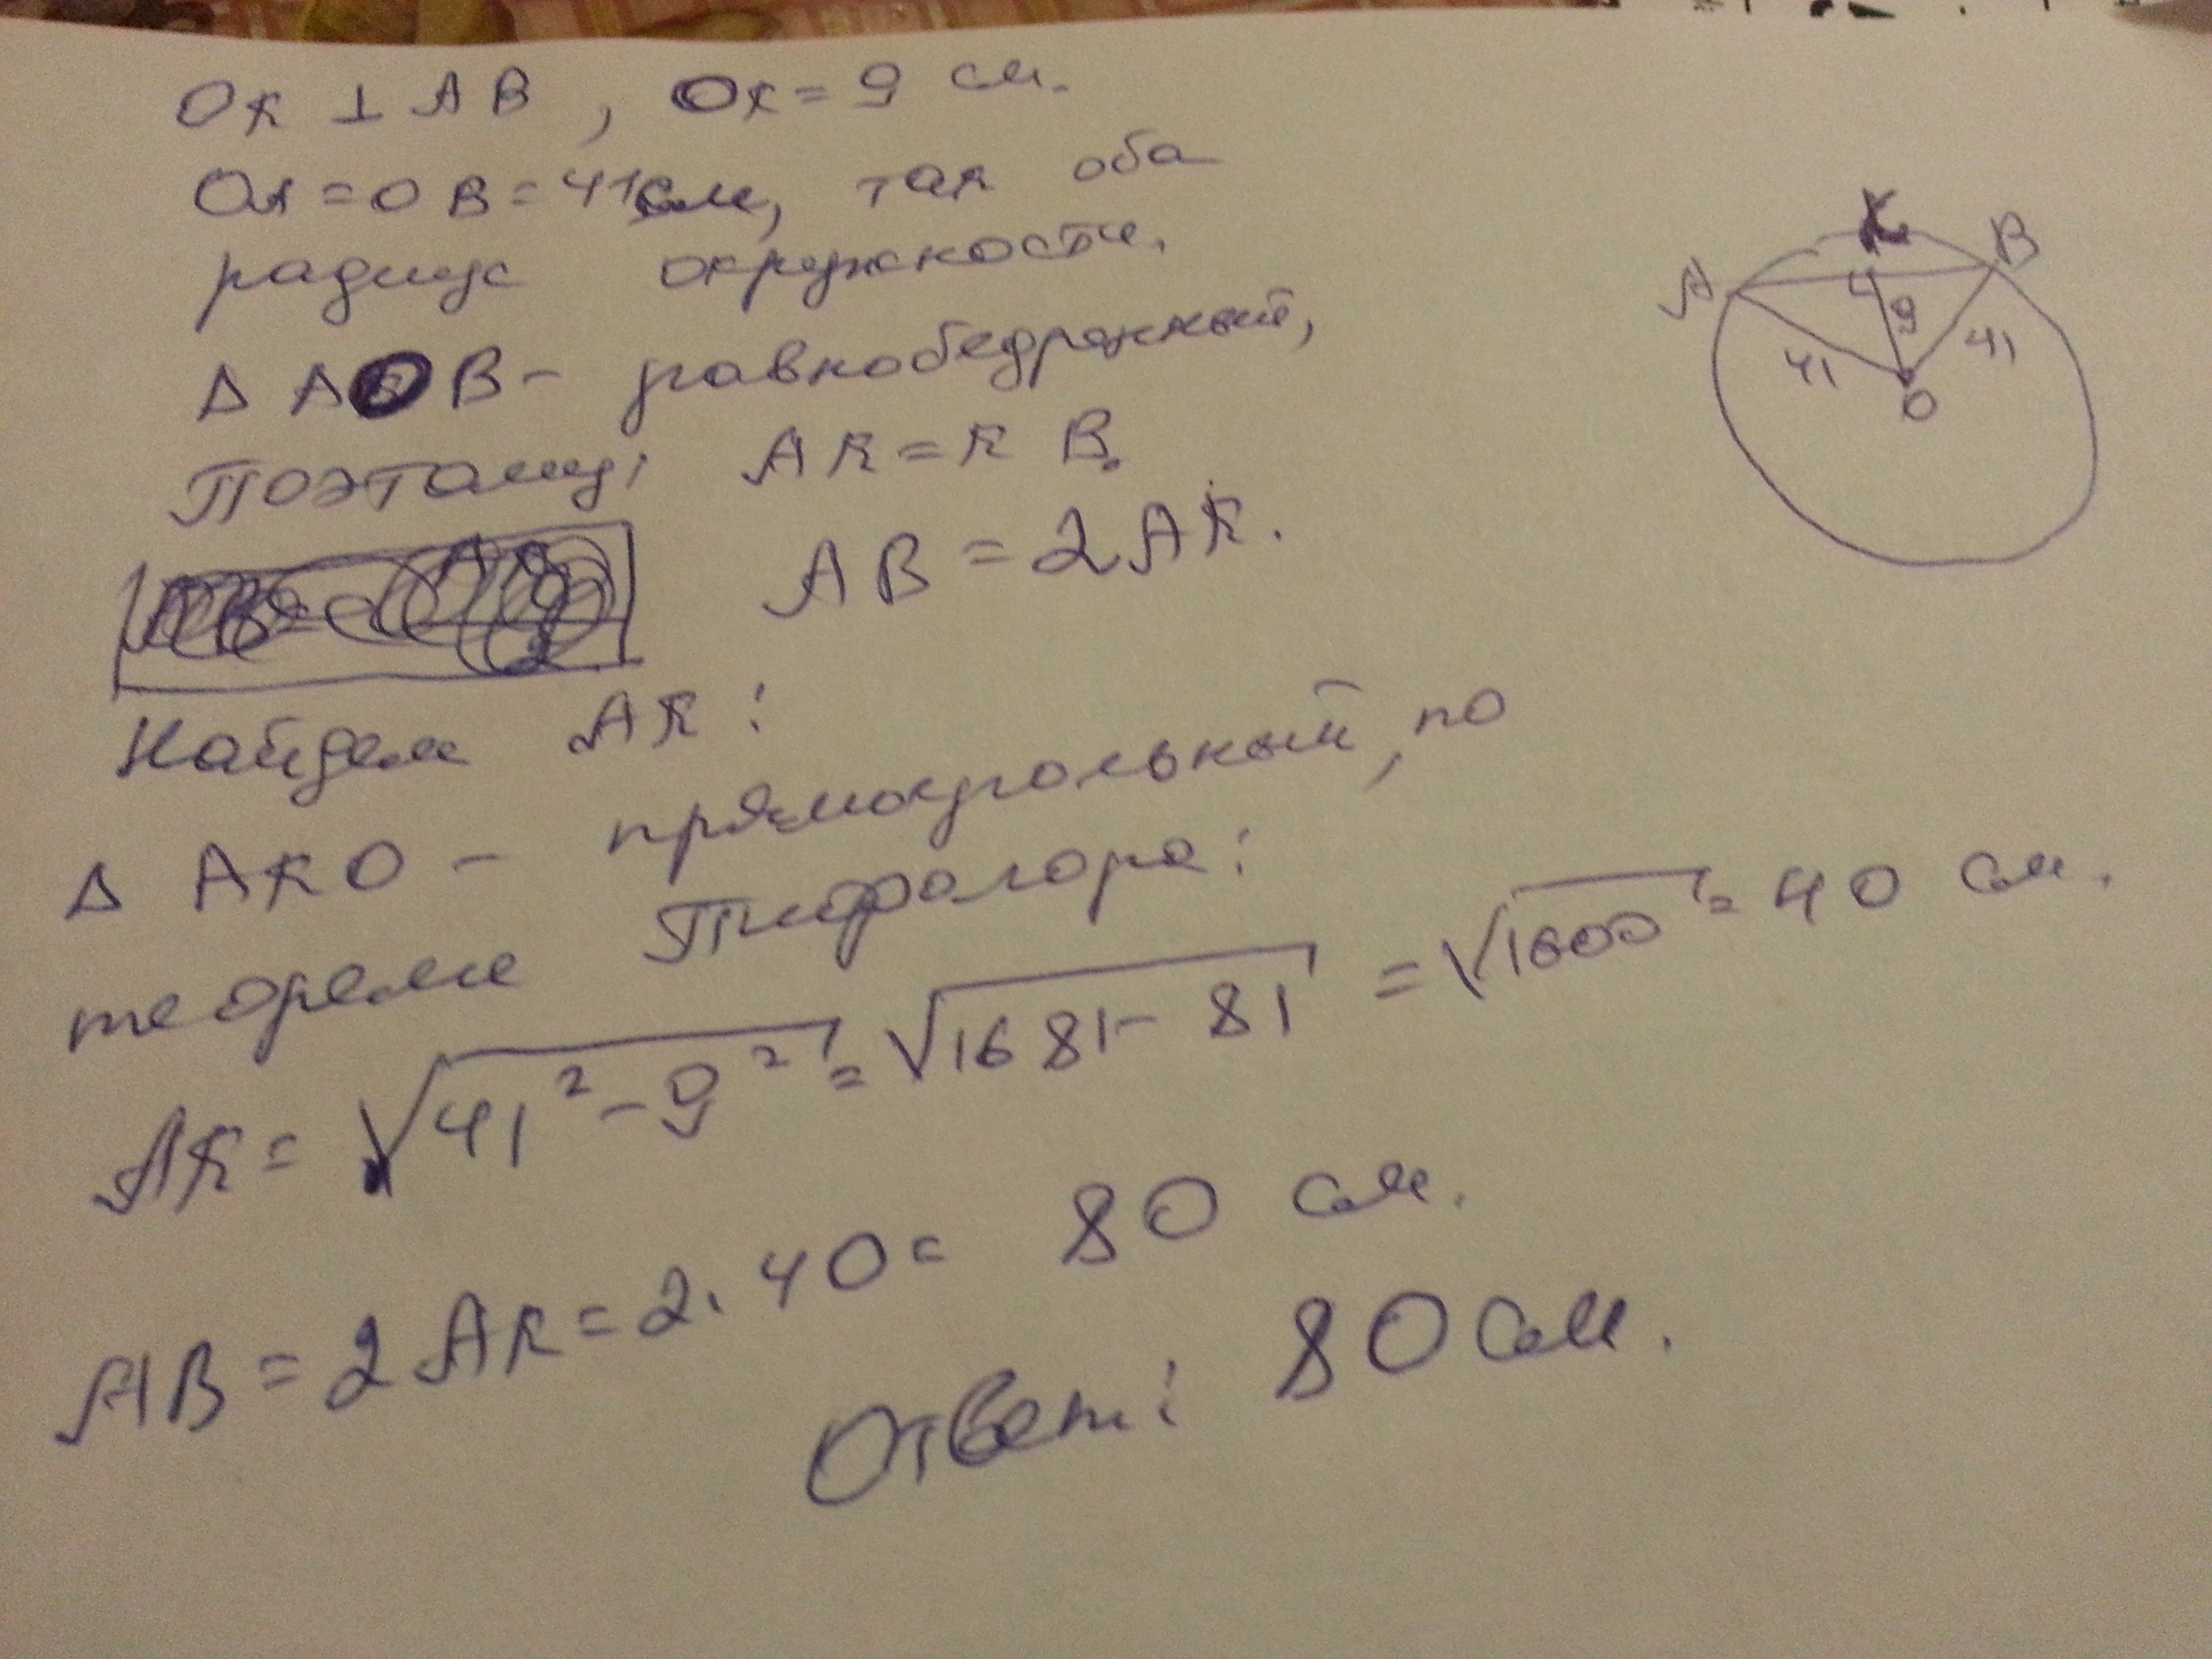 ОК ⊥ АВ, ОК = 9 см.
ОА = ОВ = 41 см, так оба
радиус окружности.
Δ АОВ - равнобедренный,
Поэтому: АК = КВ.
АВ = 2АК.
Найдем АК:
Δ АКО - прямоугольный, по
теореме Пифагора:
АК = √(41² - 9²) = √(1681 - 81) = √1600 = 40 см.
АВ = 2АК = 2 · 40 = 80 см.
Ответ: 80 см.
К
А
В
9
41
41
О